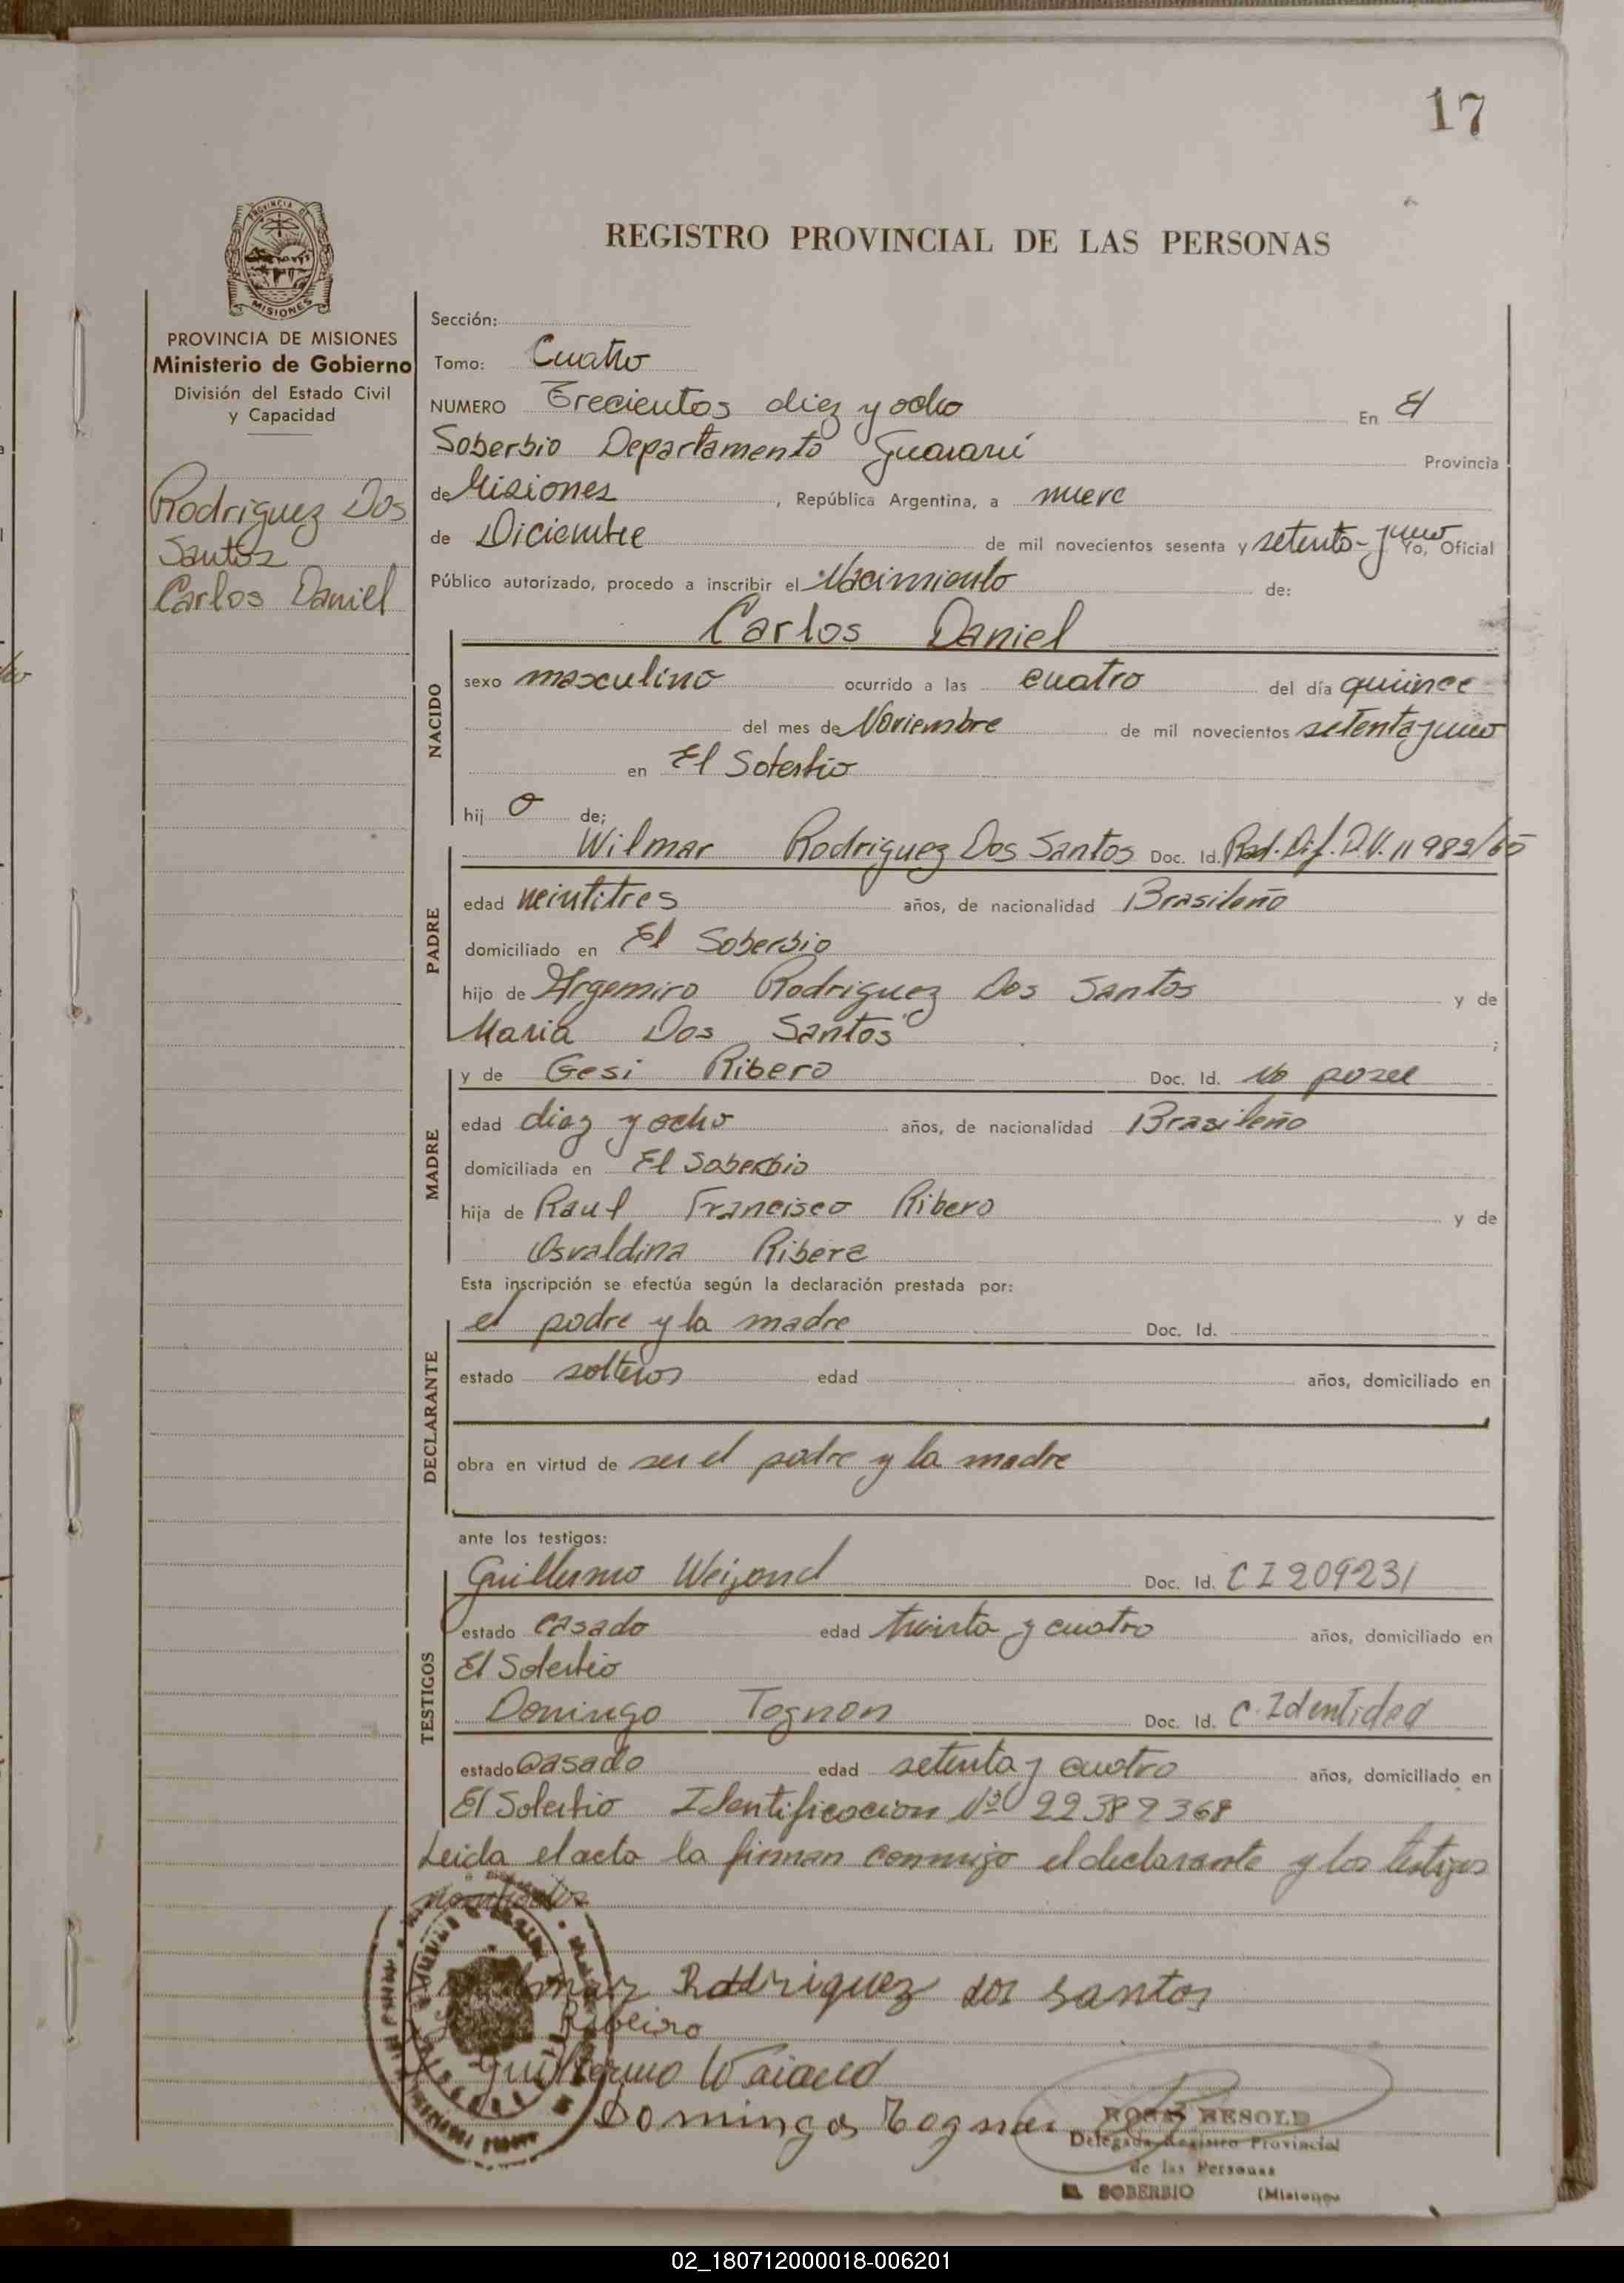 17
PROVINCIA DE
MISIONES
PROVINCIA DE MISIONES
Ministerio de Gobierno
División del Estado Civil
y Capacidad
Rodriguez Dos
Santos
Carlos Daniel
REGISTRO PROVINCIAL DE LAS PERSONAS
Sección:
Tomo: Cuatro
NUMERO Trecientos diez y ocho En El
Soberbio Departamento Guaraní Provincia
de Misiones, República Argentina, a nueve
de Diciembre de mil novecientos sesenta y setenta y uno Yo, Oficial
Público autorizado, procedo a inscribir el Nacimiento de:
Carlos Daniel
NACIDO
sexo masculino ocurrido a las cuatro del día quince
del mes de Noviembre de mil novecientos setenta y uno
en El Soberbio
hij o de;
PADRE
Wilmar Rodriguez Dos Santos Doc. Id. Rad. Dif. D.V. 11982/65
edad veintitres años, de nacionalidad Brasileño
domiciliado en El Soberbio
hijo de Argemiro Rodriguez Dos Santos y de
Maria Dos Santos ;
MADRE
y de Gesi Ribero Doc. Id. No posee
edad diez y ocho años, de nacionalidad Brasileño
domiciliada en El Soberbio
hija de Raul Francisco Ribero y de
Osvaldina Ribera
Esta inscripción se efectúa según la declaración prestada por:
DECLARANTE
el padre y la madre Doc. Id.
estado solteros edad años, domiciliado en
obra en virtud de ser el padre y la madre
ante los testigos:
TESTIGOS
Guillermo Weigand Doc. Id. C I 209231
estado casado edad treinta y cuatro años, domiciliado en
El Soberbio
Domingo Tognon Doc. Id. C. Identidad
estado Casado edad setenta y cuatro años, domiciliado en
El Soberbio Identificacion Nº 22387368
Leida el acta la firman conmigo el declarante y los testigos
nombrados
Rodriguez dos santos
Ribeiro
Guillermo Waiand
Domingos Tognon
ROSA BESOLD
Delegada Registro Provincial
de las Personas
EL SOBERBIO (Misiones)
02_180712000018-006201